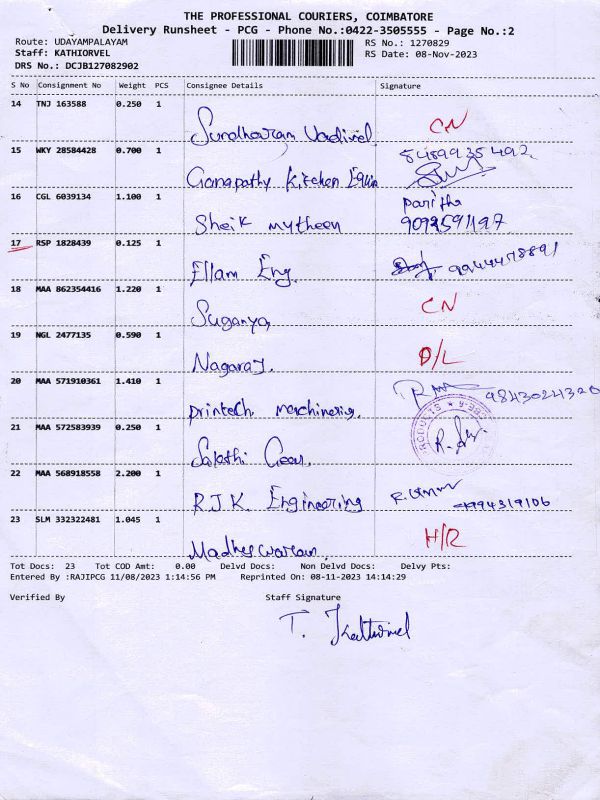 THE PROFESSIONAL COURIERS, COIMBATORE
Delivery Runsheet - PCG - Phone No.:0422-3505555 - Page No.:2
Route: UDAYAMPALAYAM RS No.: 1270829
Staff: KATHIORVEL RS Date: 08-Nov-2023
DRS No.: DCJB127082902
S No Consignment No Weight PCS Consignee Details Signature
14 TNJ 163588 0.250 1
CN
15 WKY 28584428 0.700 1 8489935492
Ganapathy Kitchen
16 CGL 6039134 1.100 1 paritha
Sheik mytheen 9092591197
17 RSP 1828439 0.125 1
Ellam Eng. 9944478891
18 MAA 862354416 1.220 1 CN
Suganya
19 NGL 2477135 0.590 1 D/L
Nagaraj.
20 MAA 571910361 1.410 1 9843024320
printech machinering
21 MAA 572583939 0.250 1
Sakthi Gear.
22 MAA 568918558 2.200 1
R.J.K. Engineering
23 SLM 332322481 1.045 1 H/R
Madheswaran.
Tot Docs: 23 Tot COD Amt: 0.00 Delvd Docs: Non Delvd Docs: Delvy Pts:
Entered By :RAJIPCG 11/08/2023 1:14:56 PM Reprinted On: 08-11-2023 14:14:29
Verified By Staff Signature
T. Kathirvel